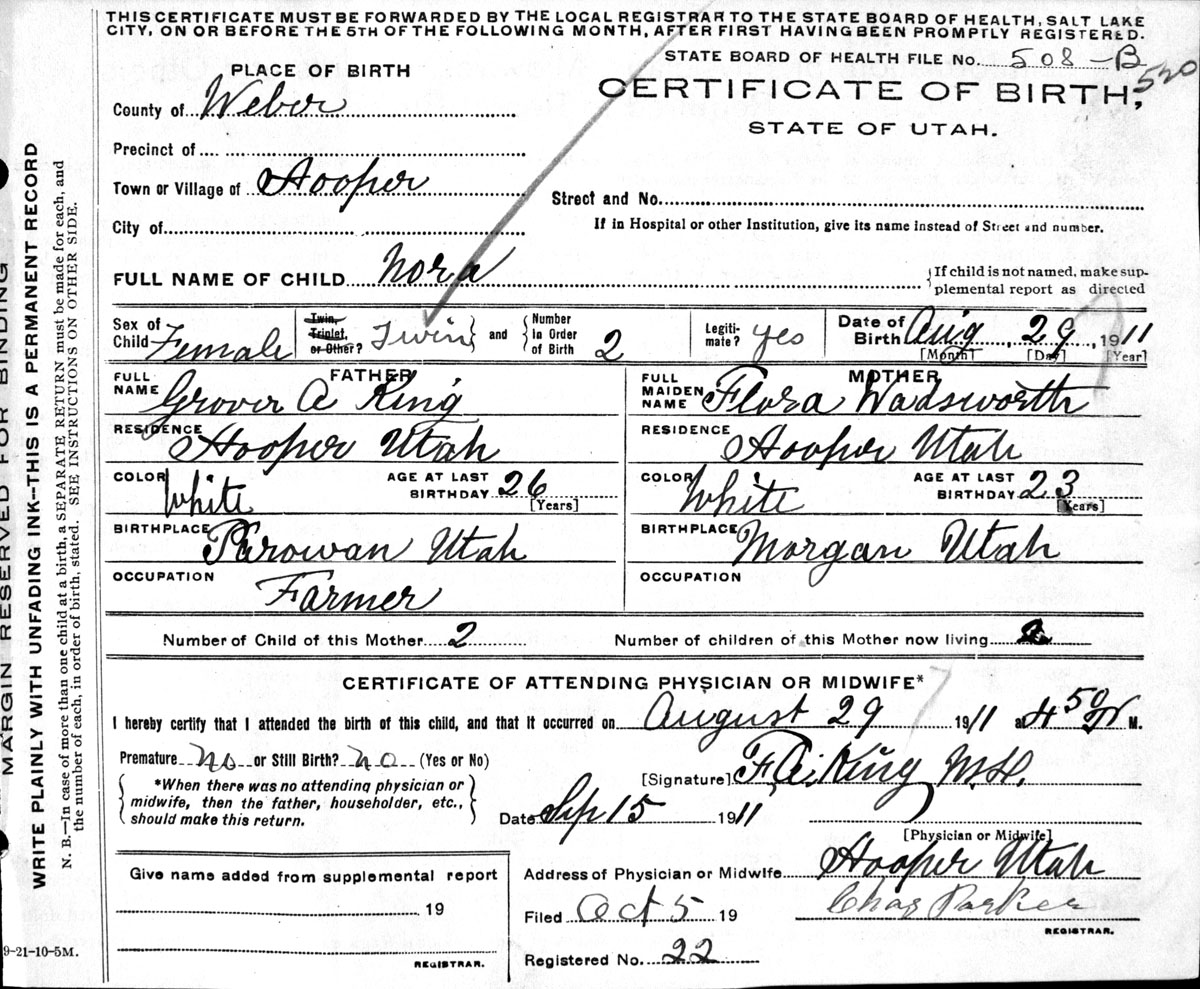 THIS CERTIFICATE MUST BE FORWARDED BY THE LOCAL REGISTRAR TO THE STATE BOARD OF HEALTH, SALT LAKE
CITY, ON OR BEFORE THE 5TH OF THE FOLLOWING MONTH, AFTER FIRST HAVING BEEN PROMPTLY REGISTERED.
STATE BOARD OF HEALTH FILE No. 508-B
520
CERTIFICATE OF BIRTH,
STATE OF UTAH.
PLACE OF BIRTH
County of Weber
Precinct of
Town or Village of Hooper
City of
Street and No.
If in Hospital or other Institution, give its name instead of Street and number.
FULL NAME OF CHILD Nora
If child is not named, make sup-
plemental report as directed
Sex of Child Female
Twin, Triplet, or Other? Twin and Number in Order of Birth 2
Legiti-mate? yes
Date of Birth Aug 29, 1911
[Month] [Day] [Year]
FATHER
FULL NAME Grover A King
RESIDENCE Hooper Utah
COLOR White AGE AT LAST BIRTHDAY 26 [Years]
BIRTHPLACE Parowan Utah
OCCUPATION Farmer
MOTHER
FULL MAIDEN NAME Flora Wadsworth
RESIDENCE Hooper Utah
COLOR White AGE AT LAST BIRTHDAY 23 [Years]
BIRTHPLACE Morgan Utah
OCCUPATION
Number of Child of this Mother 2 Number of children of this Mother now living
CERTIFICATE OF ATTENDING PHYSICIAN OR MIDWIFE*
I hereby certify that I attended the birth of this child, and that it occurred on August 29 1911 at 4 50 M.
Premature no or Still Birth? no (Yes or No)
*When there was no attending physician or
midwife, then the father, householder, etc.,
should make this return.
[Signature] F.A. King M.D.
Date Sep 15 1911
[Physician or Midwife]
Address of Physician or Midwife Hooper Utah
Filed Oct 5 19
Chas Parker
REGISTRAR.
Registered No. 22
Give name added from supplemental report
19
REGISTRAR.
MARGIN RESERVED FOR BINDING
WRITE PLAINLY WITH UNFADING INK--THIS IS A PERMANENT RECORD
N. B.—In case of more than one child at a birth, a SEPARATE RETURN must be made for each, and
the number of each, in order of birth, stated. SEE INSTRUCTIONS ON OTHER SIDE.
9-21-10-5M.